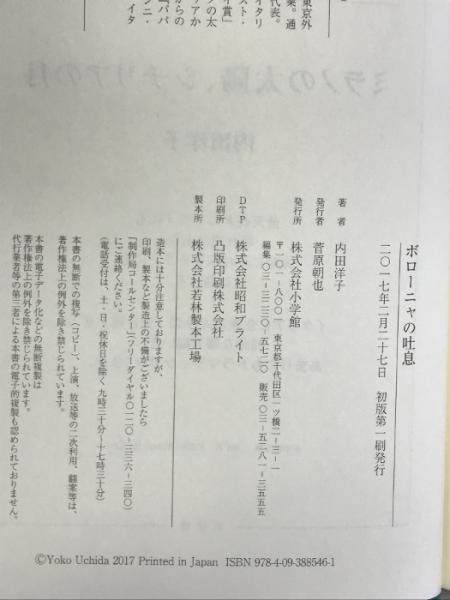 ボローニャの吐息
二〇一七年二月二十七日　初版第一刷発行
著者　内田洋子
発行者　菅原朝也
発行所　株式会社小学館
〒一〇一-八〇〇一　東京都千代田区一ツ橋二-三-一
編集 〇三-三二三〇-五七二〇　販売 〇三-五二八一-三五五五
DTP　株式会社昭和ブライト
印刷所　凸版印刷株式会社
製本所　株式会社若林製本工場
造本には十分注意しておりますが、
印刷、製本など製造上の不備がございましたら
「制作局コールセンター」（フリーダイヤル〇一二〇-三三六-三四〇）
にご連絡ください。
（電話受付は、土・日・祝休日を除く 九時三十分〜十七時三十分）
本書の無断での複写（コピー）、上演、放送等の二次利用、翻案等は、
著作権法上の例外を除き禁じられています。
本書の電子データ化などの無断複製は
著作権法上の例外を除き禁じられています。
代行業者等の第三者による本書の電子的複製も認められておりません。
©Yoko Uchida 2017 Printed in Japan ISBN 978-4-09-388546-1
東京外
業。通
イタリ
代表。
スト・
イ賞」
ノの太
アか
からの
『パパ
ンニ・
イタ